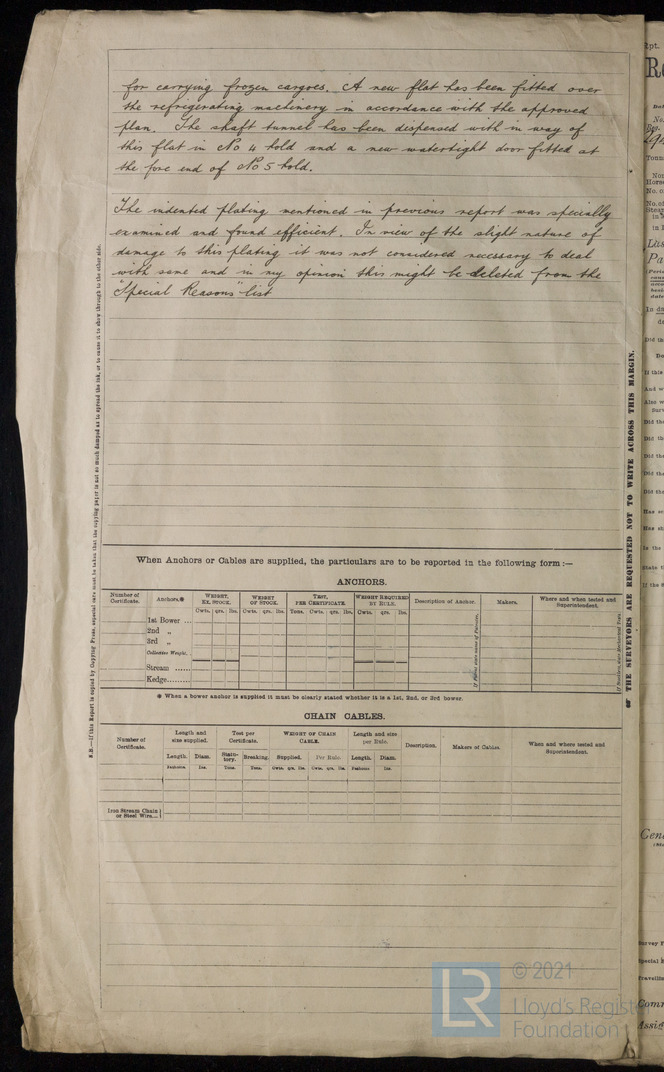 for carrying frozen cargoes. A new flat has been fitted over
the refrigerating machinery in accordance with the approved
plan. The shaft tunnel has been dispensed with in way of
this flat in No 4 hold and a new watertight door fitted at
the fore end of No 5 hold.
The indented plating mentioned in previous report was specially
examined and found efficient. In view of the slight nature of
damage to this plating it was not considered necessary to deal
with same and in my opinion this might be deleted from the
"Special Reasons" list
When Anchors or Cables are supplied, the particulars are to be reported in the following form:—
ANCHORS.
Number of Certificate. Anchors.* WEIGHT, EX. STOCK. WEIGHT OF STOCK. TEST, PER CERTIFICATE. WEIGHT REQUIRED BY RULE. Description of Anchor. Makers. Where and when tested and Superintendent.
Cwts. qrs. lbs. Cwts. qrs. lbs. Tons. Cwts. qrs. lbs. Cwts. qrs. lbs.
1st Bower ...
2nd „
3rd „
Collective Weight.
Stream ......
Kedge........
* When a bower anchor is supplied it must be clearly stated whether it is a 1st, 2nd, or 3rd bower.
CHAIN CABLES.
Number of Certificate. Length and size supplied. Test per Certificate. WEIGHT OF CHAIN CABLE. Length and size per Rule. Description. Makers of Cables. When and where tested and Superintendent.
Length. Diam. Statutory. Breaking. Supplied. Per Rule. Length. Diam.
Fathoms. Ins. Tons. Tons. Cwts. qrs. lbs. Cwts. qrs. lbs. Fathoms. Ins.
Iron Stream Chain
or Steel Wire....
N.B.—If this Report is copied by Copying Press, especial care must be taken that the copying paper is not so much damped as to spread the ink, or to cause it to show through to the other side.
THE SURVEYORS ARE REQUESTED NOT TO WRITE ACROSS THIS MARGIN.
LR
© 2021
Lloyd's Register
Foundation